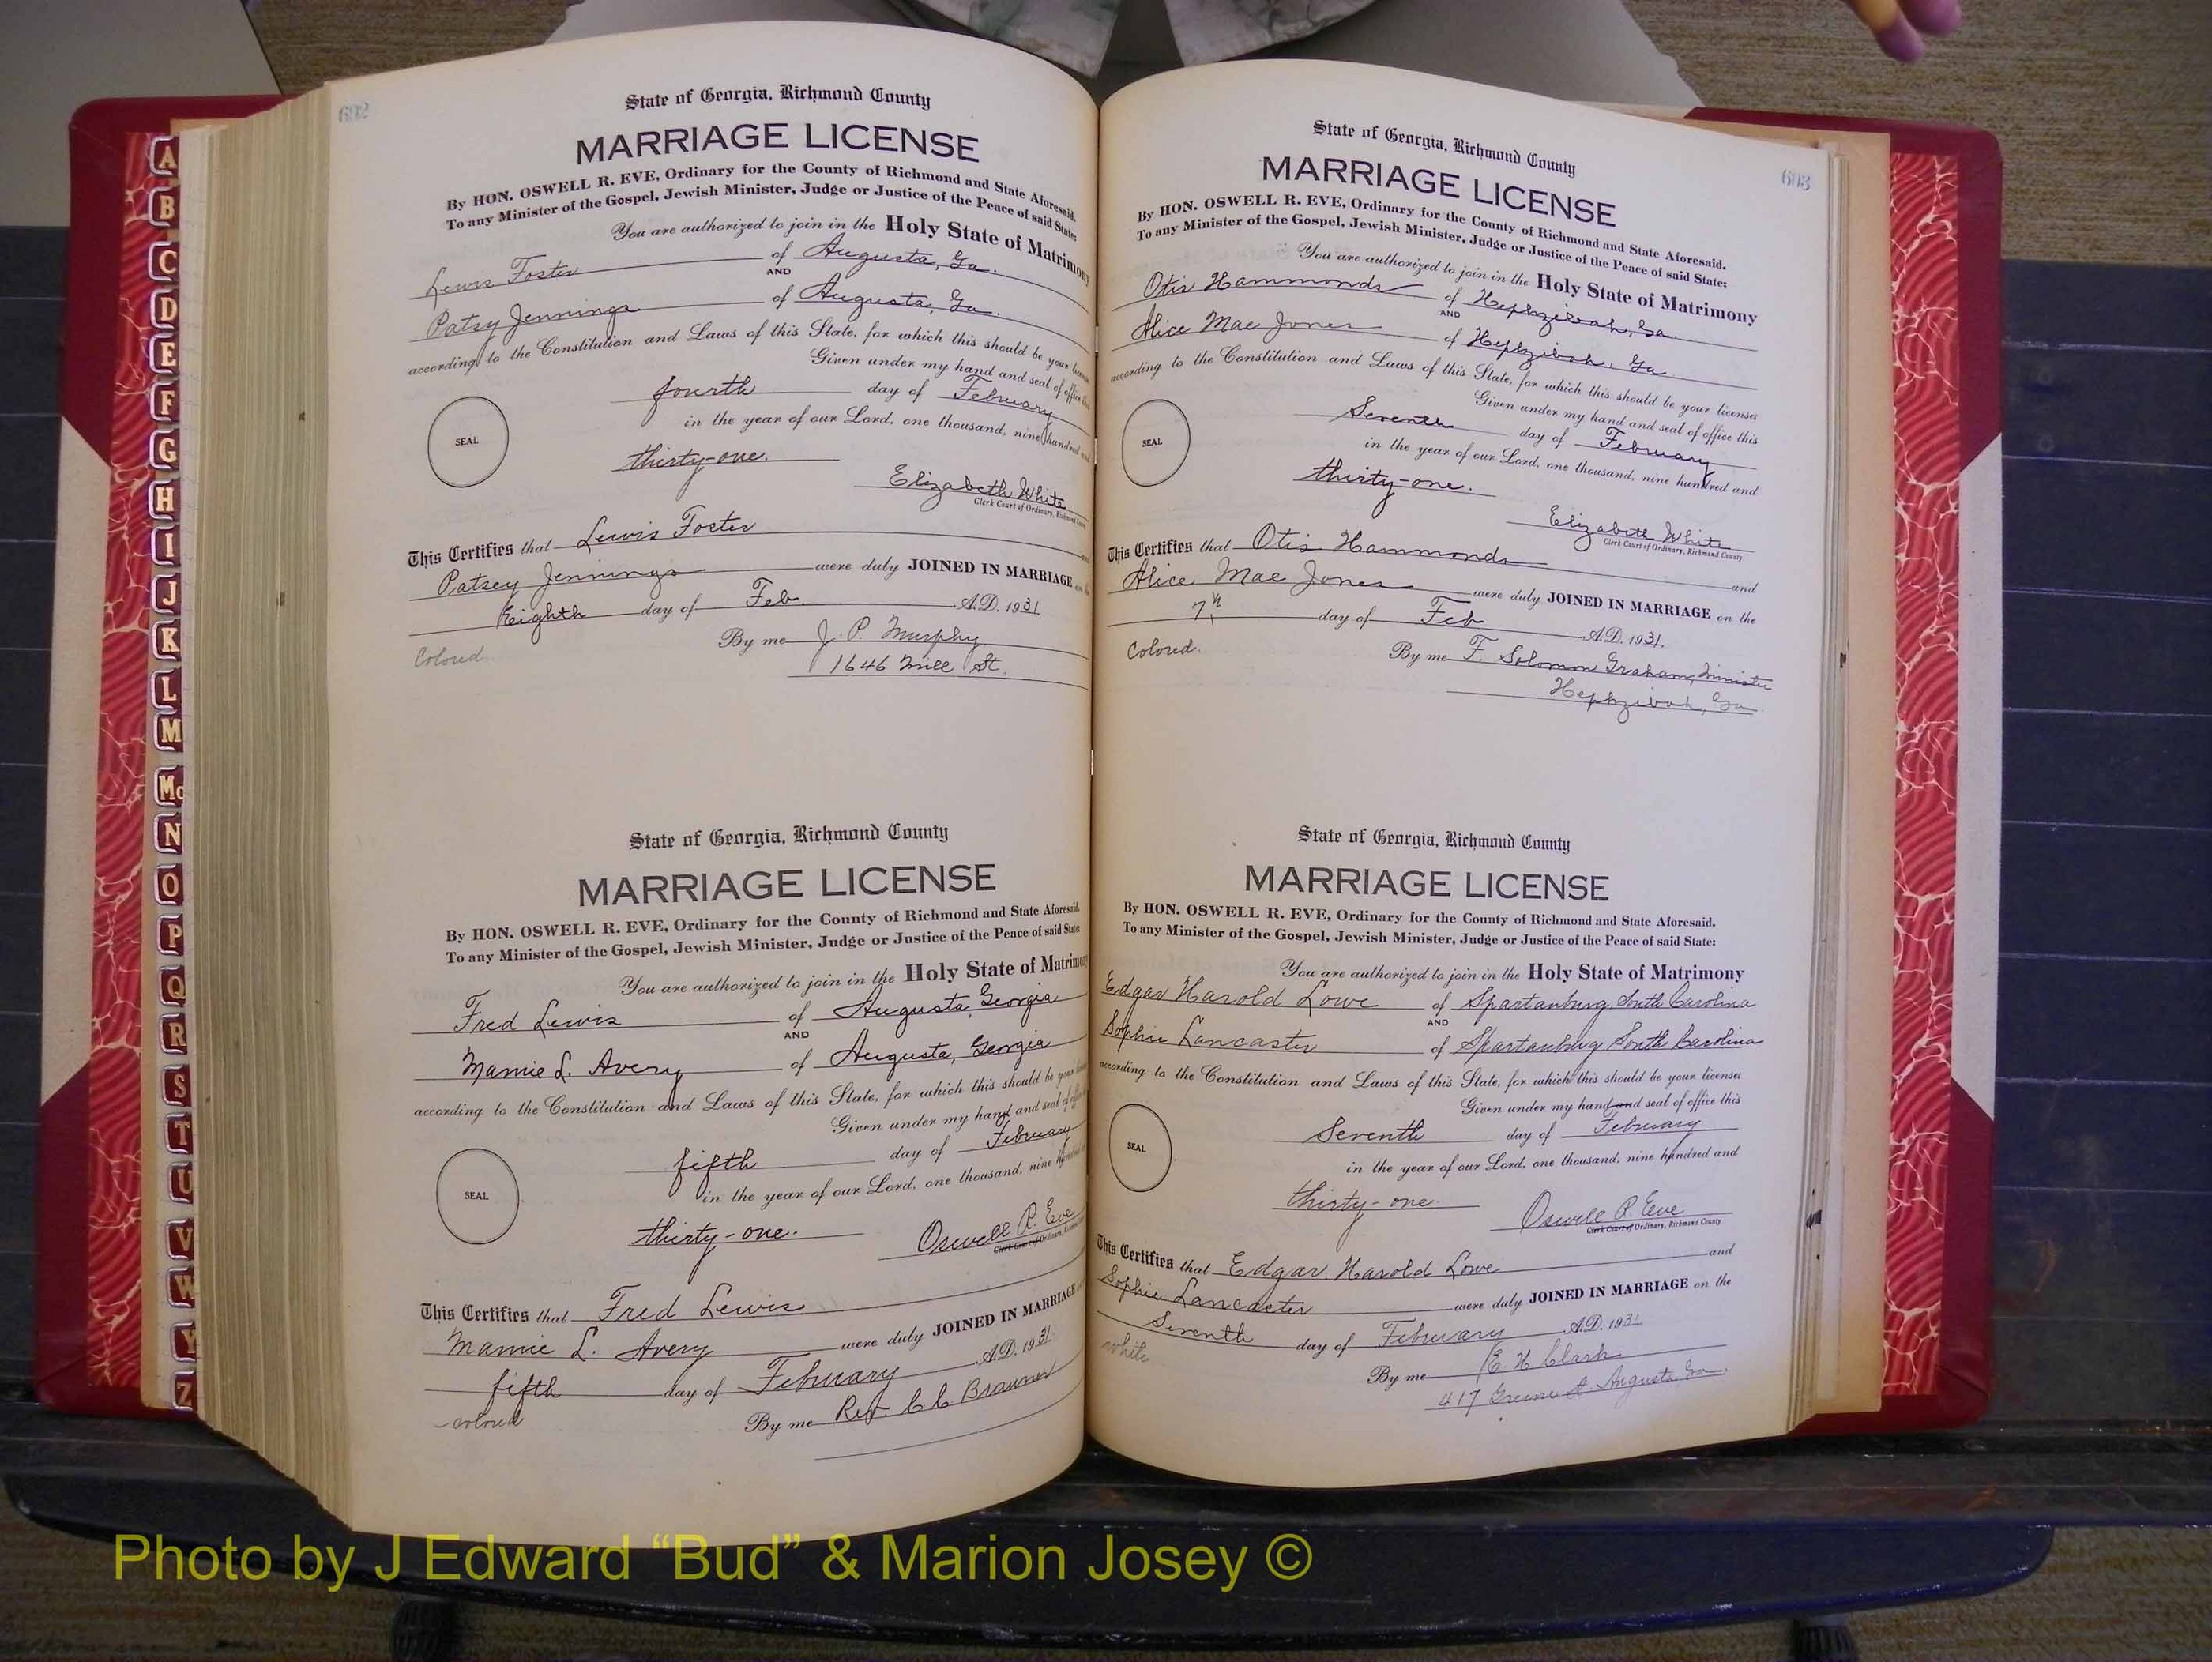 A
B
C
D
E
F
G
H
I
J
K
L
M
Mc
N
O
P
Q
R
S
T
U
V
W
Y
Z
692
State of Georgia, Richmond County
MARRIAGE LICENSE
By HON. OSWELL R. EVE, Ordinary for the County of Richmond and State Aforesaid.
To any Minister of the Gospel, Jewish Minister, Judge or Justice of the Peace of said State:
You are authorized to join in the Holy State of Matrimony
Lewis Foster of Augusta, Ga.
AND
Patsy Jennings of Augusta, Ga.
according to the Constitution and Laws of this State, for which this should be your license
Given under my hand and seal of office this
fourth day of February
in the year of our Lord, one thousand, nine hundred and
SEAL
thirty-one.
Elizabeth White
Clerk Court of Ordinary, Richmond County
This Certifies that Lewis Foster and
Patsey Jennings were duly JOINED IN MARRIAGE on the
Eighth day of Feb. A.D. 1931.
Colored
By me J. P. Murphy
1646 Mill St.
State of Georgia, Richmond County
MARRIAGE LICENSE
By HON. OSWELL R. EVE, Ordinary for the County of Richmond and State Aforesaid.
To any Minister of the Gospel, Jewish Minister, Judge or Justice of the Peace of said State:
You are authorized to join in the Holy State of Matrimony
Fred Lewis of Augusta, Georgia
AND
Mamie L. Avery of Augusta, Georgia
according to the Constitution and Laws of this State, for which this should be your
Given under my hand and seal of office
fifth day of February
in the year of our Lord, one thousand, nine hundred
SEAL
thirty-one.
Oswell R. Eve
Clerk Court of Ordinary, Richmond
This Certifies that Fred Lewis
Mamie L. Avery were duly JOINED IN MARRIAGE
fifth day of February A.D. 1931.
colored
By me Rev. C C Brawner
693
State of Georgia, Richmond County
MARRIAGE LICENSE
By HON. OSWELL R. EVE, Ordinary for the County of Richmond and State Aforesaid.
To any Minister of the Gospel, Jewish Minister, Judge or Justice of the Peace of said State:
You are authorized to join in the Holy State of Matrimony
Otis Hammonds of Hephzibah, Ga.
AND
Alice Mae Jones of Hephzibah, Ga
according to the Constitution and Laws of this State, for which this should be your license
Given under my hand and seal of office this
Seventh day of February
in the year of our Lord, one thousand, nine hundred and
SEAL
thirty-one.
Elizabeth White
Clerk Court of Ordinary, Richmond County
This Certifies that Otis Hammonds and
Alice Mae Jones were duly JOINED IN MARRIAGE on the
7th day of Feb A.D. 1931.
Colored.
By me F. Solomon Graham, Minister
Hephzibah, Ga
State of Georgia, Richmond County
MARRIAGE LICENSE
By HON. OSWELL R. EVE, Ordinary for the County of Richmond and State Aforesaid.
To any Minister of the Gospel, Jewish Minister, Judge or Justice of the Peace of said State:
You are authorized to join in the Holy State of Matrimony
Edgar Harold Lowe of Spartanburg, South Carolina
AND
Sophie Lancaster of Spartanburg South Carolina
according to the Constitution and Laws of this State, for which this should be your license
Given under my hand and seal of office this
Seventh day of February
in the year of our Lord, one thousand, nine hundred and
SEAL
thirty-one.
Oswell R. Eve
Clerk Court of Ordinary, Richmond County
This Certifies that Edgar Harold Lowe and
Sophie Lancaster were duly JOINED IN MARRIAGE on the
Seventh day of February A.D. 1931
white
By me E. H Clark
417 Greene St. Augusta Ga.
Photo by J Edward “Bud” & Marion Josey ©